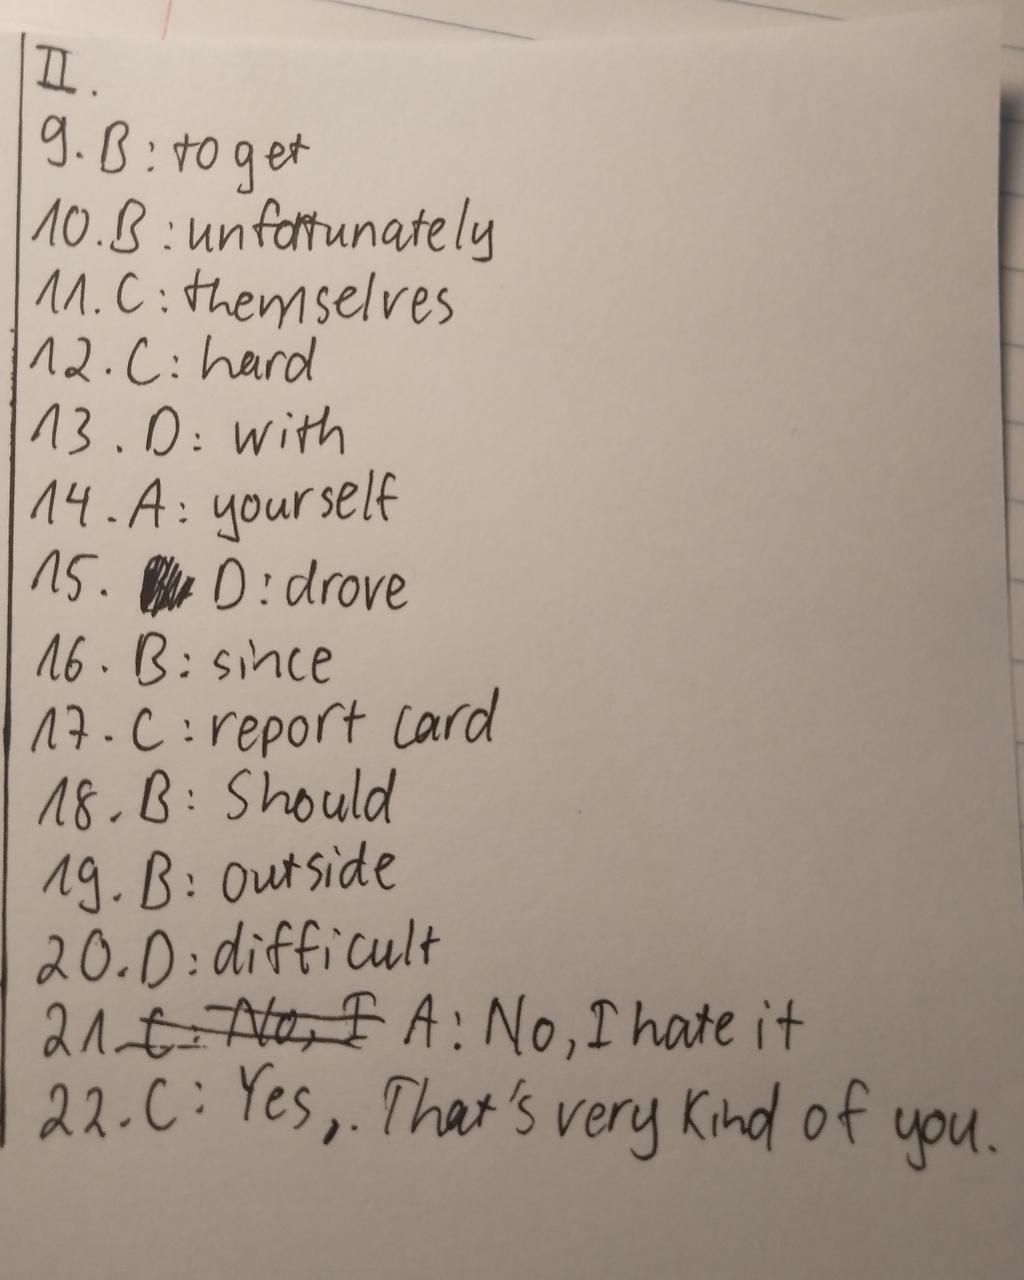 II.
9. B: to get
10. B: unfortunately
11. C: themselves
12. C: hard
13. D: with
14. A: yourself
15. D: drove
16. B: since
17. C: report card
18. B: Should
19. B: outside
20. D: difficult
21. C: No, I A: No, I hate it
22. C: Yes,. That's very kind of you.